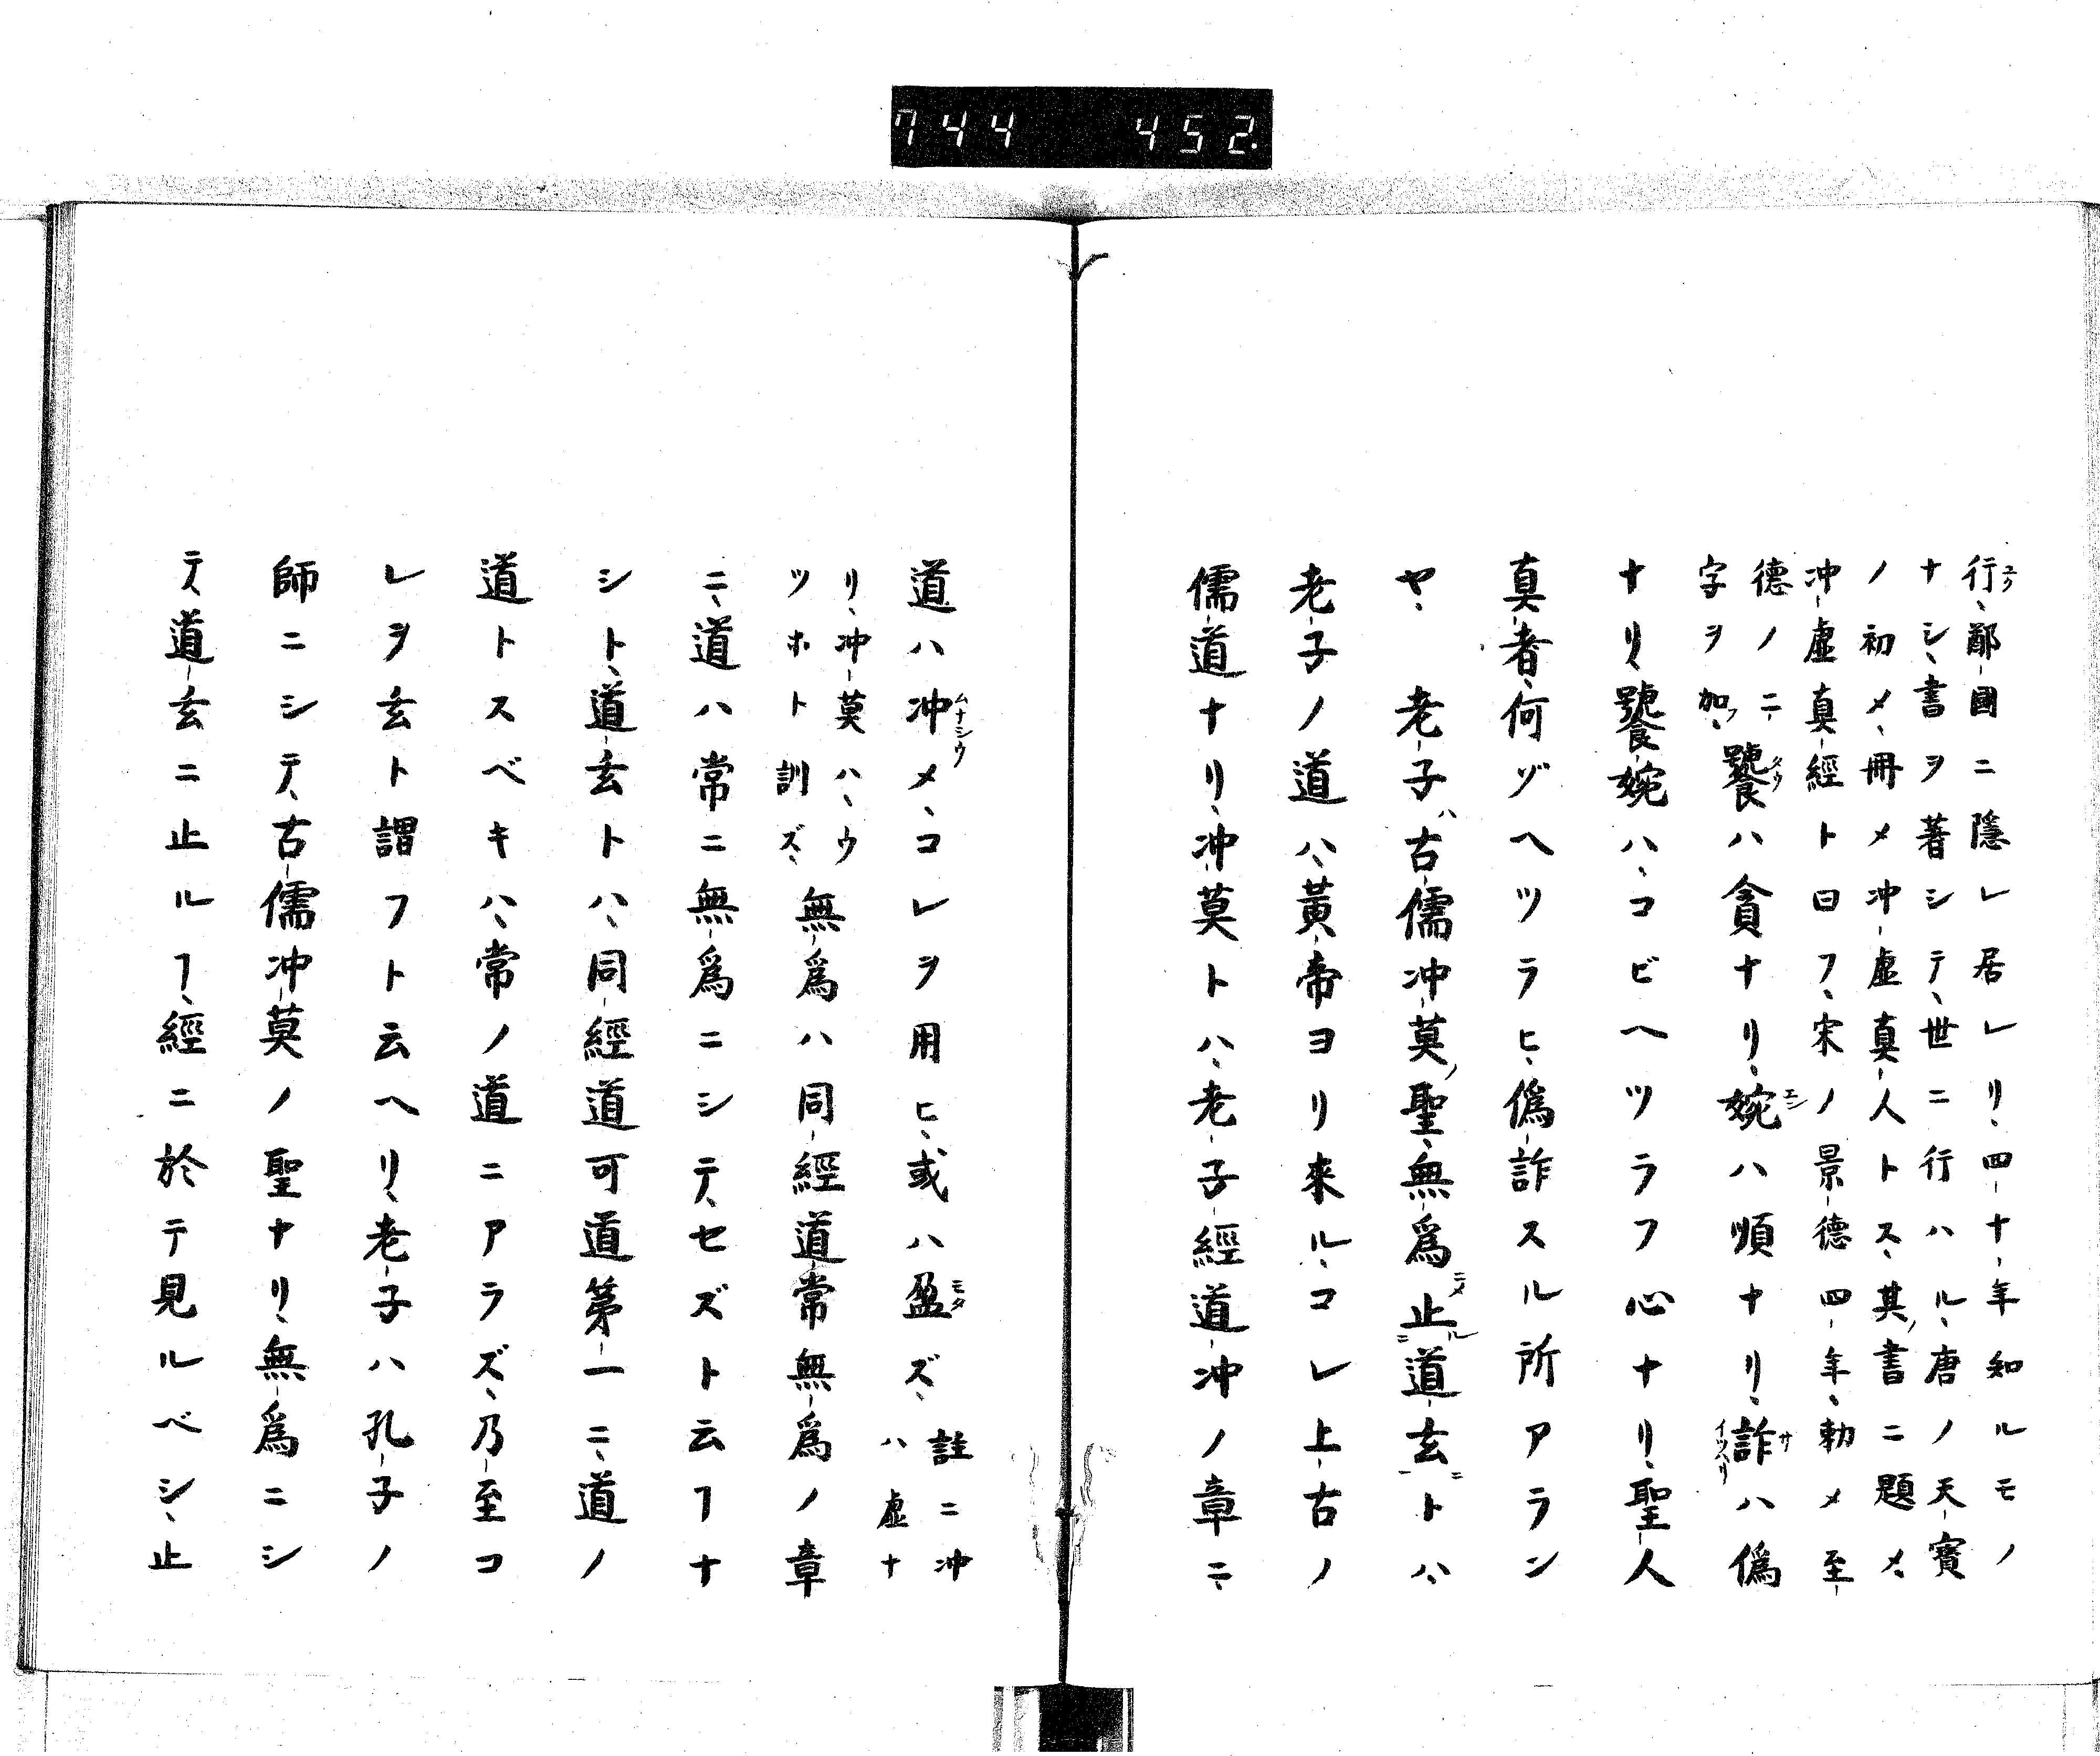 744 452.
行、鄙國ニ隱レ居レリ、四十年知ルモノ
ナシ、書ヲ著シテ、世ニ行ハル、唐ノ天寳
ノ初メ、冊メ冲虛真人トス、其書ニ題メ、
冲虛真經ト曰フ、宋ノ景德四年、勅メ至
德ノニ
字ヲ加フ、饕ハ貪ナリ、婉ハ順ナリ、詐ハ僞
ナリ、饕婉ハ、コビヘツラフ心ナリ、聖人
真者、何ゾヘツラヒ、僞詐スル所アラン
ヤ、 老子ハ古儒冲莫ノ聖、無爲ニメ止ル道玄ニトハ、
老子ノ道ハ、黃帝ヨリ來ル、コレ上古ノ
儒道ナリ、冲莫トハ、老子經道冲ノ章ニ、
道ハ冲メ、コレヲ用ヒ、或ハ盈ズ、註ニ冲
ハ虛ナ
リ、冲莫ハ、ウ
ツホト訓ズ、無爲ハ同經道常無爲ノ章
ニ、道ハ常ニ無爲ニシテ、セズト云フヿナ
シト、道玄トハ、同經道可道第一ニ、道ノ
道トスベキハ、常ノ道ニアラズ、乃至コ
レヲ玄ト謂フト云ヘリ、老子ハ孔子ノ
師ニシテ、古儒冲莫ノ聖ナリ、無爲ニシ
テ、道玄ニ止ルヿ、經ニ於テ見ルベシ、止